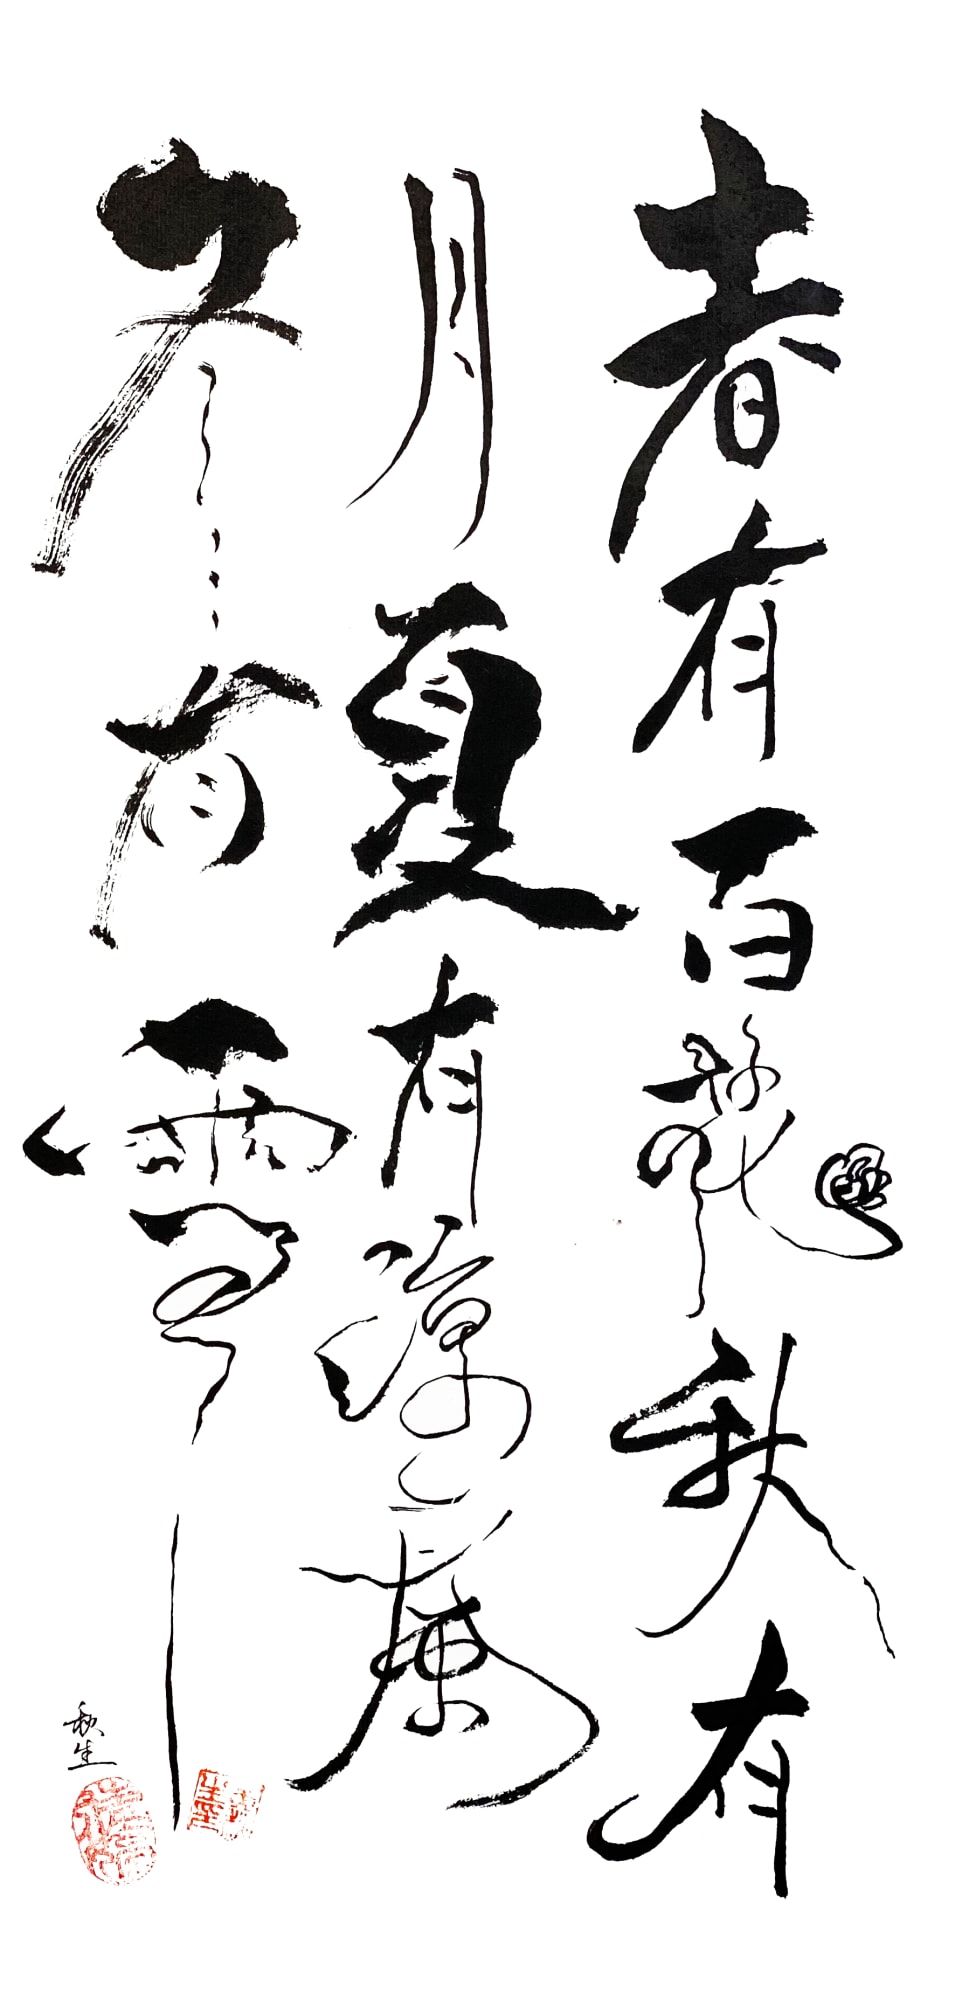 春有百花秋有
月夏有涼風
冬有雪
秋生